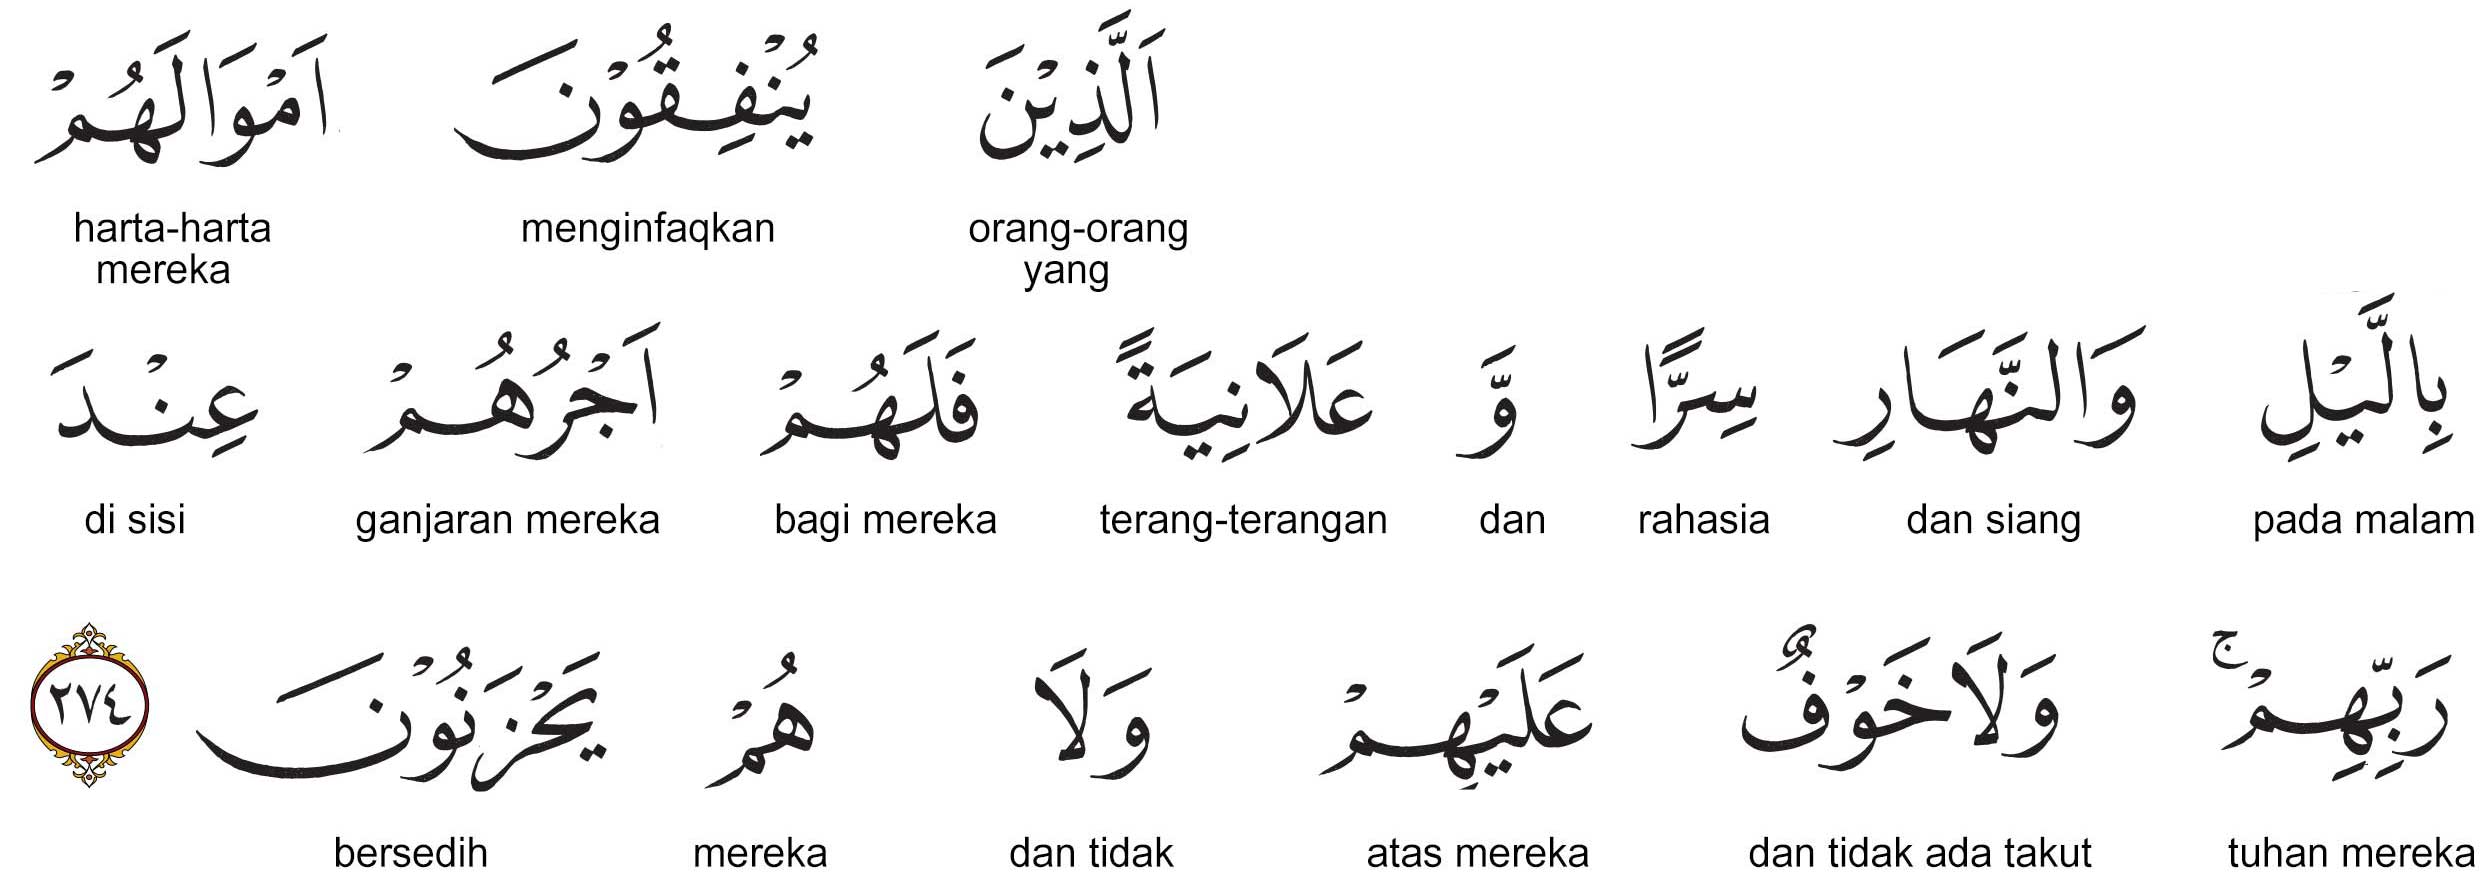 اَلَّذِيْنَ يُنْفِقُوْنَ اَمْوَالَهُمْ
orang-orang yang menginfaqkan harta-harta mereka
بِالَّيْلِ وَالنَّهَارِ سِرًّا وَّ عَلَانِيَةً فَلَهُمْ اَجْرُهُمْ عِنْدَ
pada malam dan siang rahasia dan terang-terangan bagi mereka ganjaran mereka di sisi
رَبِّهِمْۚ وَلَا خَوْفٌ عَلَيْهِمْ وَلَا هُمْ يَحْزَنُوْنَ ٢٧٤
tuhan mereka dan tidak ada takut atas mereka dan tidak mereka bersedih